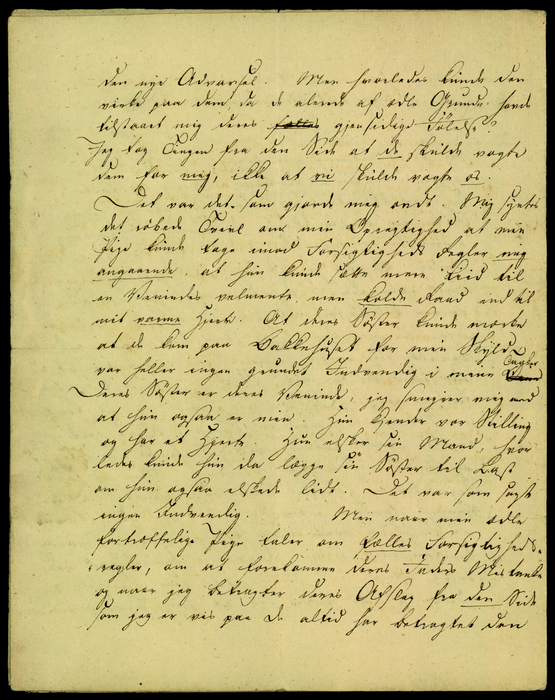 den nye Advarsel. Men hvorledes kunde den
virke paa dem da de alerede af ædle Grunde havde
tilstaaet mig deres fælles gjensidige Følelse?
Jeg tog Tingen fra den Side at de skulde vogte
dem for mig, ikke at vi skulde vogte os.
Det var det som gjorde meg ondt. Mig syntes
det røbede Tvivl om min Oprigtighed at min
Pige kunde tage imod Forsigtigheds Regler mig
angaaende, at hun kunde sætte mere Liid til
en Venindes velmente men kolde Raad end til
mit varme Hjerte. At deres Søster kunde mærke
at de kom paa Bakkehuset for min Skyld
var heller ingen grundet Indvending i mine Tanker
Deres Søster er deres Veninde, jeg smigrer mig med
at hun ogsaa er min. Hun kjender vor Stilling
og har et Hjerte. Hun elsker sin Mand, hvor
ledes kunde hun da lægge sin Søster til Last
om hun ogsaa elskede lidt. Det var som sagt
ingen Indvending. Men naar min ædle
fortræffelige Pige taler om fælles Forsigtigheds-
regler, om at forekomme deres Faders Mistanke
og naar jeg betragter deres Afslag fra den Side
som jeg er vis paa De altid har betragtet den